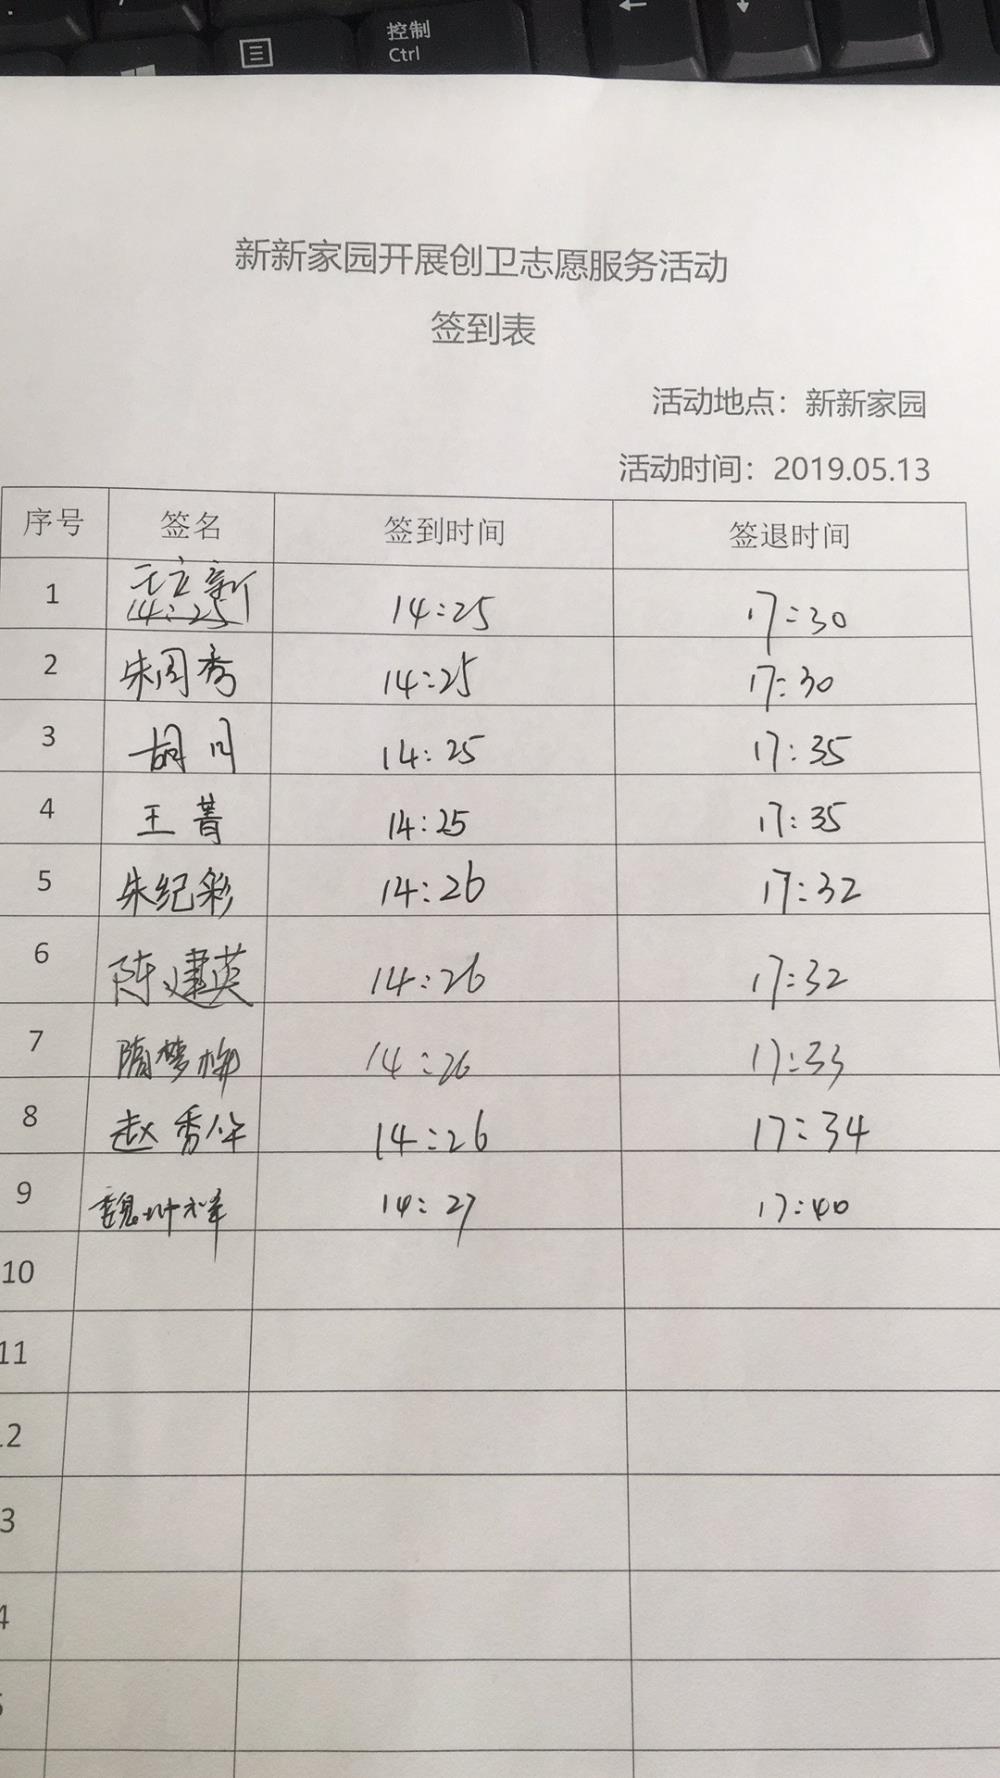 控制
Ctrl
新新家园开展创卫志愿服务活动
签到表
活动地点：新新家园
活动时间：2019.05.13
序号 签名 签到时间 签退时间
1 立新 14:25 14:25 17:30
2 朱闵秀 14:25 17:30
3 胡月 14:25 17:35
4 王菁 14:25 17:35
5 朱纪彩 14:26 17:32
6 陈建英 14:26 17:32
7 隋梦柳 14:26 17:33
8 赵秀华 14:26 17:34
9 魏 祥 14:27 17:40
10
11